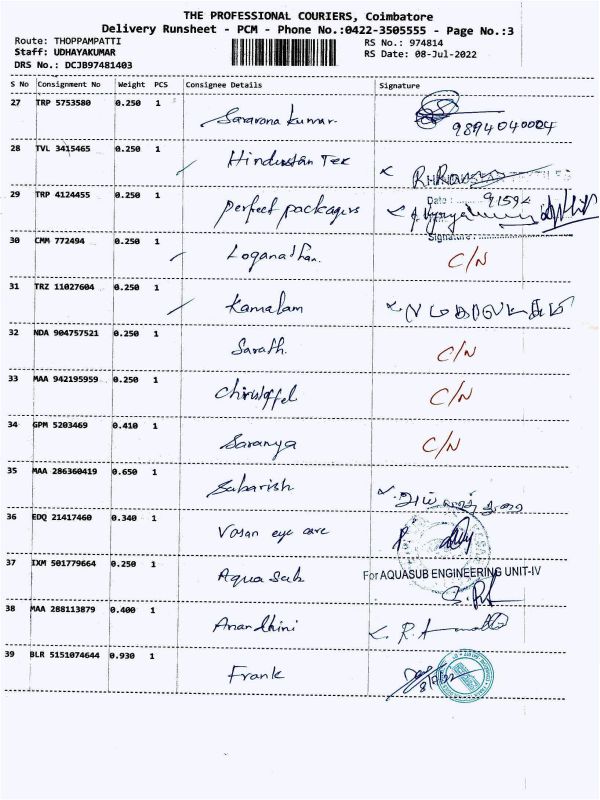 THE PROFESSIONAL COURIERS, Coimbatore
Delivery Runsheet - PCM - Phone No.:0422-3505555 - Page No.:3
Route: THOPPAMPATTI RS No.: 974814
Staff: UDHAYAKUMAR RS Date: 08-Jul-2022
DRS No.: DCJB97481403
S No Consignment No Weight PCS Consignee Details Signature
27 TRP 5753580 0.250 1 Saravana kumar
9894040004
28 TVL 3415465 0.250 1 Hindustan Tex
29 TRP 4124455 0.250 1 perfect packagers
Date : 91594
Signature :
30 CMM 772494 0.250 1 Loganathan. C/N
31 TRZ 11027604 0.250 1 Kamalam
32 NDA 904757521 0.250 1 Sarath. C/N
33 MAA 942195959 0.250 1 C/N
34 GPM 5203469 0.410 1 Saranya C/N
35 MAA 286360419 0.650 1 Sabarish
36 EDQ 21417460 0.340 1 Vasan eye care
37 IXM 501779664 0.250 1 Aqua Sub For AQUASUB ENGINEERING UNIT-IV
38 MAA 288113879 0.400 1 Anandhini
39 BLR 5151074644 0.930 1 Frank